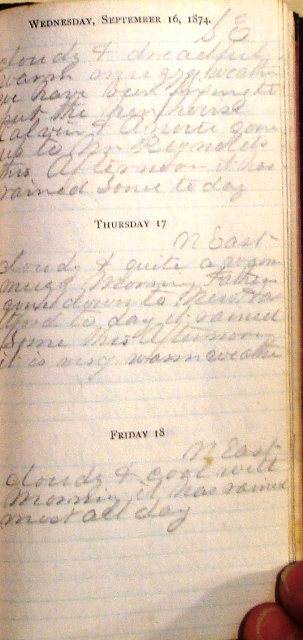 WEDNESDAY, SEPTEMBER 16, 1874.
S E
cloudy & dreadful
warm mugy weather
we have been
put the hen house
Calvin & Annie gone
up to Mr Reynolds
this Afternoon it has
rained some to day
THURSDAY 17
N East
cloudy & quite a warm
mugy Morning Father
gone down to
to day it rained
Some this Afternoon
it is very warm weather
FRIDAY 18
N East
cloudy & cool wett
Morning it has rained
most all day